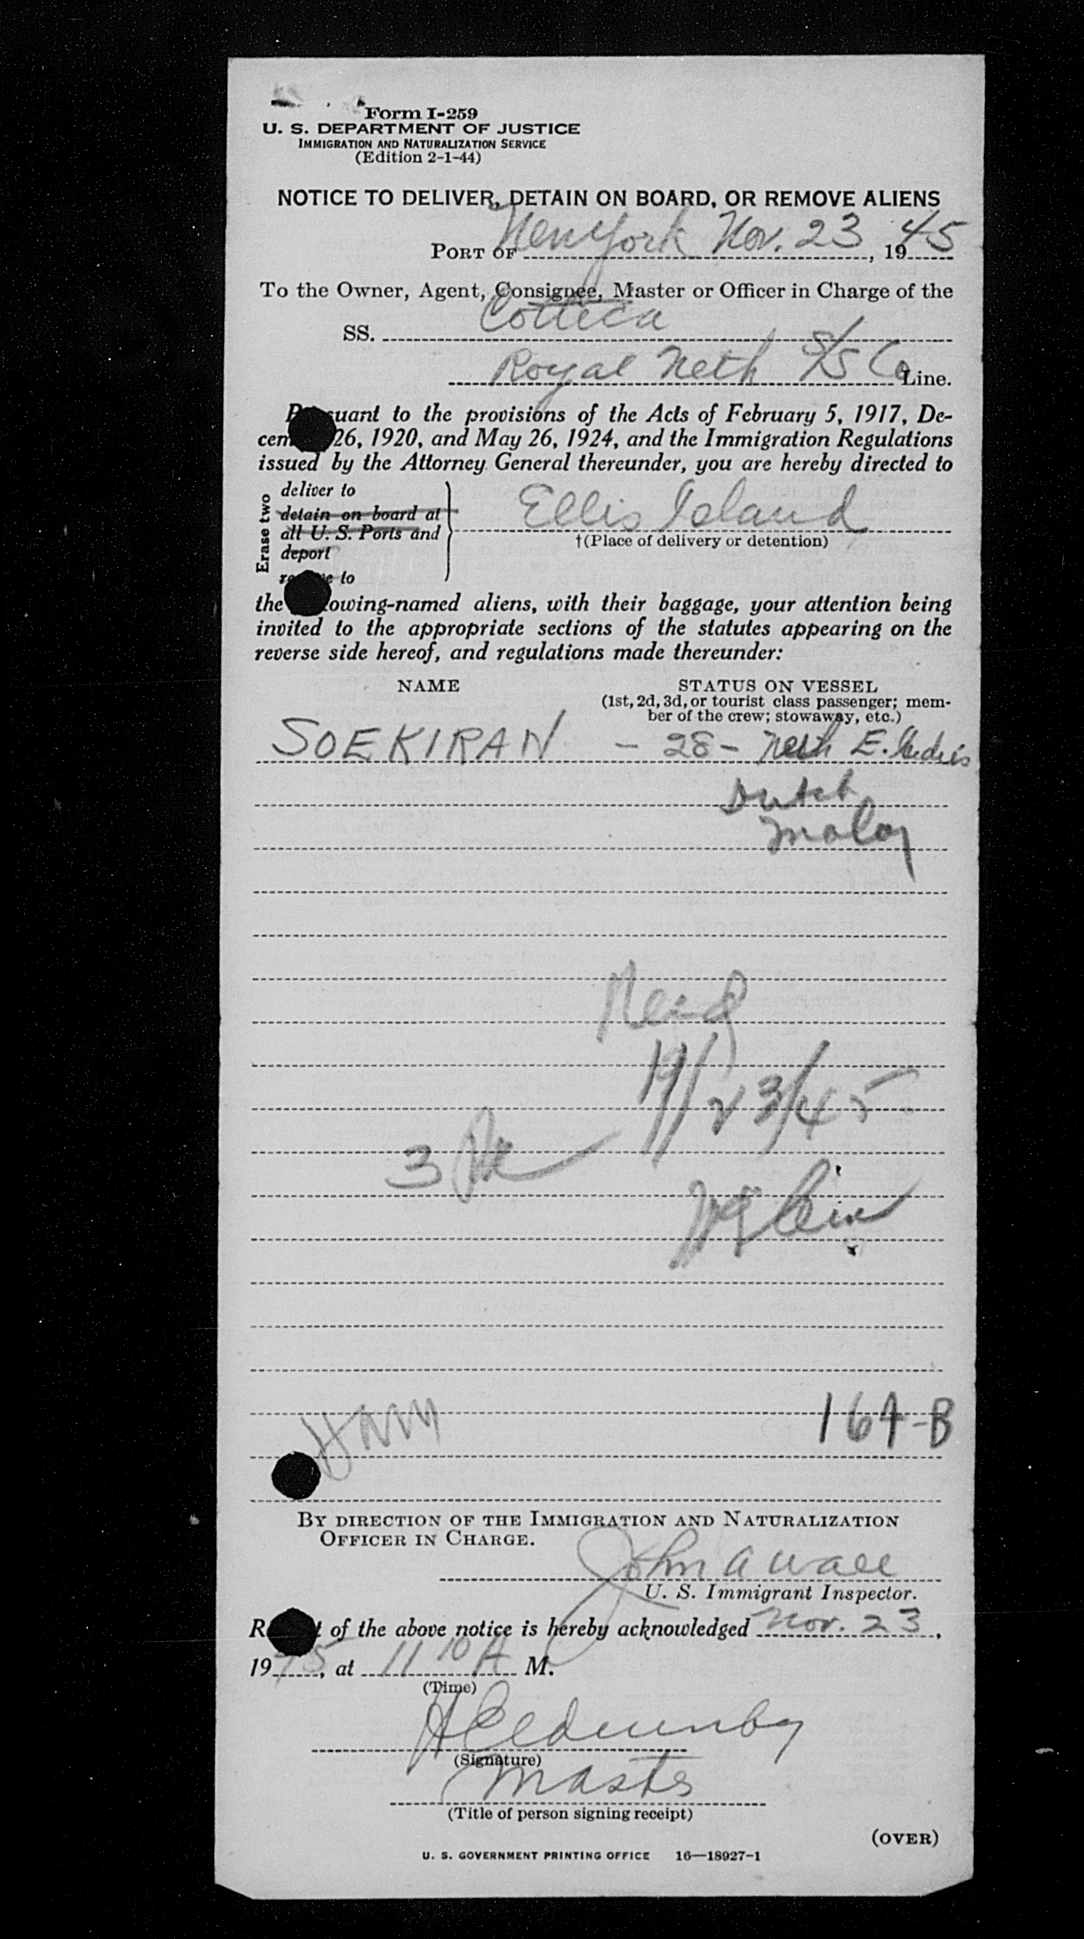 Form I-259
U. S. DEPARTMENT OF JUSTICE
IMMIGRATION AND NATURALIZATION SERVICE
(Edition 2-1-44)
NOTICE TO DELIVER, DETAIN ON BOARD, OR REMOVE ALIENS
PORT OF New York Nov. 23, 1945
To the Owner, Agent, Consignee, Master or Officer in Charge of the
SS. Cottica
Royal Neth S/S Co Line.
Pursuant to the provisions of the Acts of February 5, 1917, De-
cember 26, 1920, and May 26, 1924, and the Immigration Regulations
issued by the Attorney General thereunder, you are hereby directed to
Erase two
deliver to
detain on board at
all U. S. Ports and
deport
remove to
Ellis Island
†(Place of delivery or detention)
the following-named aliens, with their baggage, your attention being
invited to the appropriate sections of the statutes appearing on the
reverse side hereof, and regulations made thereunder:
NAME STATUS ON VESSEL
(1st, 2d, 3d, or tourist class passenger; mem-
ber of the crew; stowaway, etc.)
SOEKIRAN - 28 - Neth E. Indies
Dutch
Malay
Recd
11/23/45
3
164-B
BY DIRECTION OF THE IMMIGRATION AND NATURALIZATION
OFFICER IN CHARGE.
John A Wall
U. S. Immigrant Inspector.
Receipt of the above notice is hereby acknowledged Nov. 23,
1945, at 11 10 A M.
(Time)
(Signature)
Master
(Title of person signing receipt)
(OVER)
U. S. GOVERNMENT PRINTING OFFICE 16—18927-1